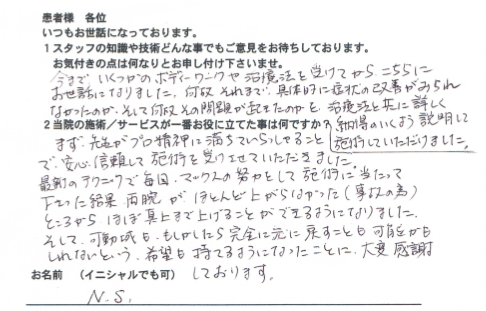 患者様 各位
いつもお世話になっております。
1スタッフの知識や技術どんな事でもご意見をお待ちしております。
お気付きの点は何なりとお申し付け下さいませ。
今まで、いくつかのボディーワークや治療法を受けてから、こちらに
お世話になりました。何故、それまで、具体的に症状の改善がみられ
なかったのか、そして何故その問題が起きたのかと、治療法と共に詳しく
2当院の施術/サービスが一番お役に立てた事は何ですか?
納得のいくよう説明して
施術していただけました。
まず、先生がプロ精神に満ちていらっしゃること
で、安心、信頼して施術を受けさせていただきました。
最新のテクニックで毎回、マックスの努力をして施術に当たって
下さった結果、両腕がほとんど上がらなかった(事故の為)
ところから ほぼ真上まで上げることができるようになりました。
そして、可動域も、もしかしたら完全に元に戻すことも可能かも
しれないという、希望も持てるようになったことに、大変感謝
しております。
お名前 (イニシャルでも可)
N.S.